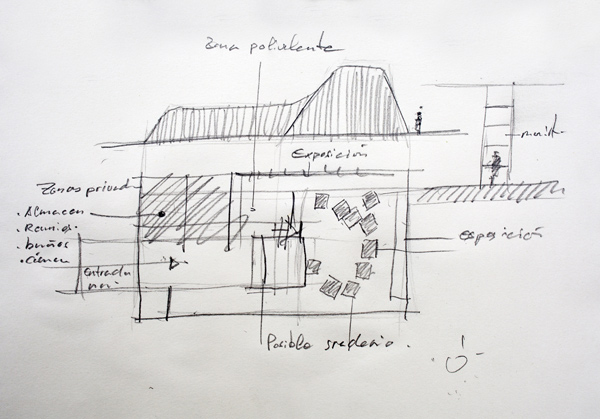 Zona polivalente
Exposición
Zonas privad
• Almacen
• Reunion
• baños
Entrada
exposición
Posible graderio.